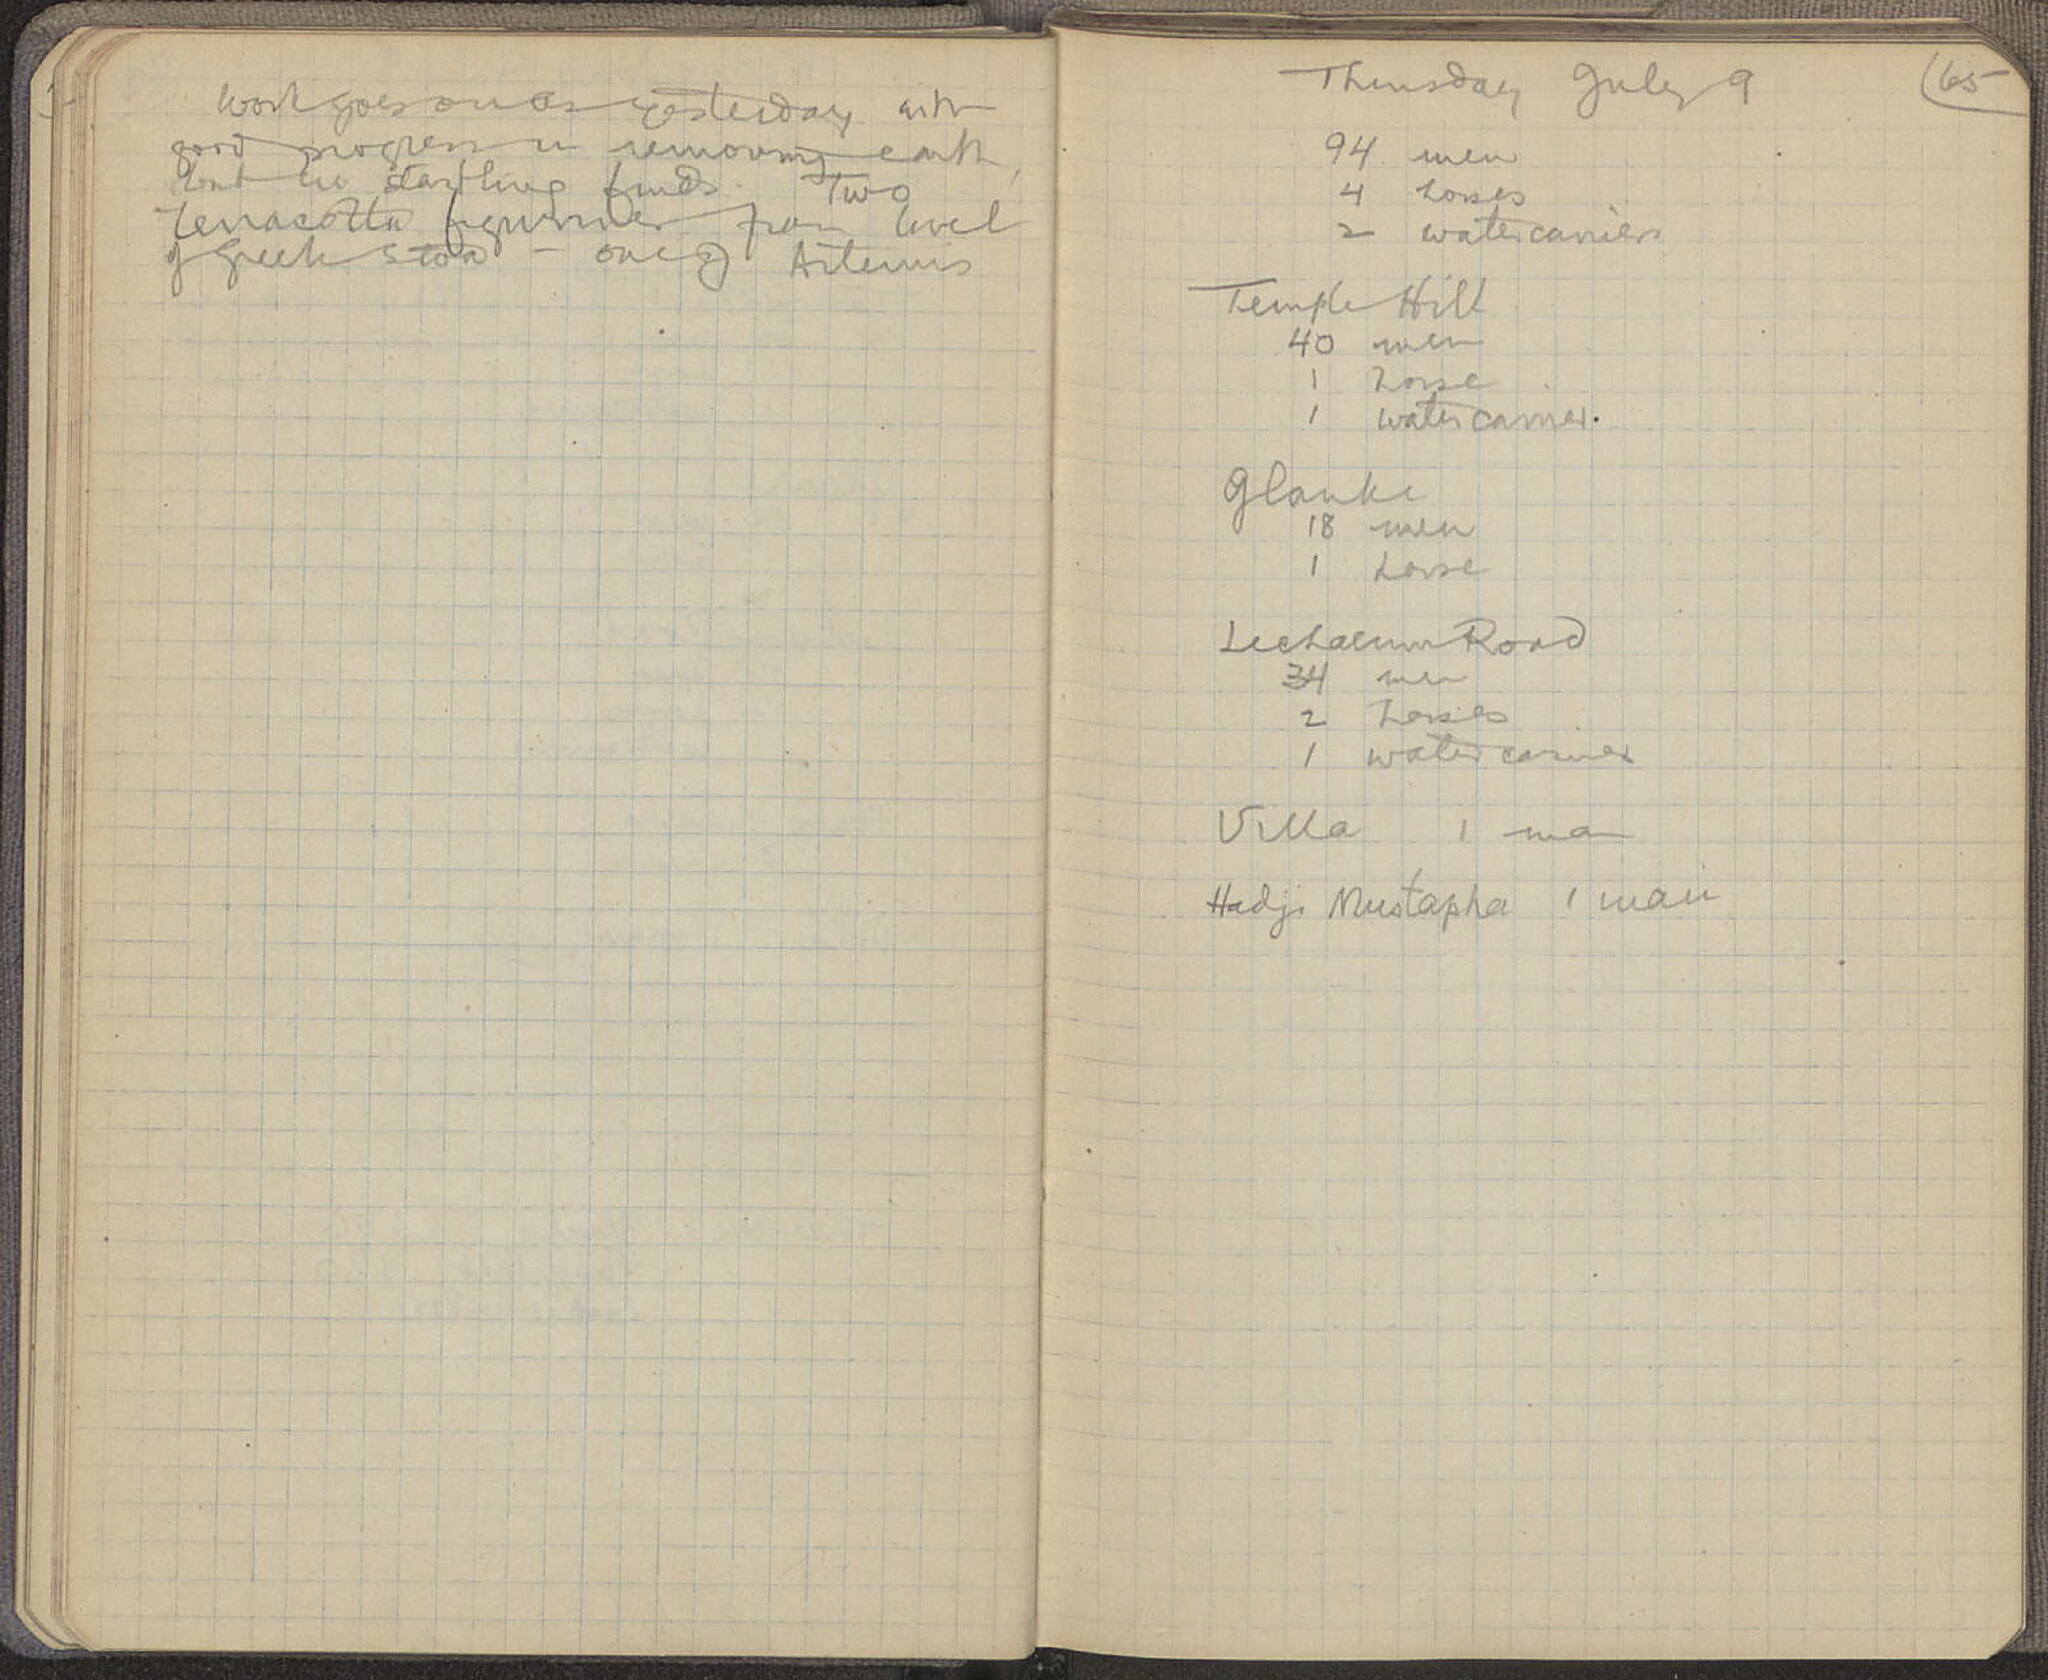 Work goes on as yesterday with
good progress in removing earth,
but no startling finds. Two
terracotta figurines from level
of Greek Stoa – one of Artemis
Thursday July 9
65
94 men
4 horses
2 water carriers
Temple Hill
40 men
1 horse
1 water carrier.
Glauke
18 men
1 horse
Lechaeum Road
34 men
2 horses
1 water carrier
Villa 1 man
Hadji Mustapha 1 man